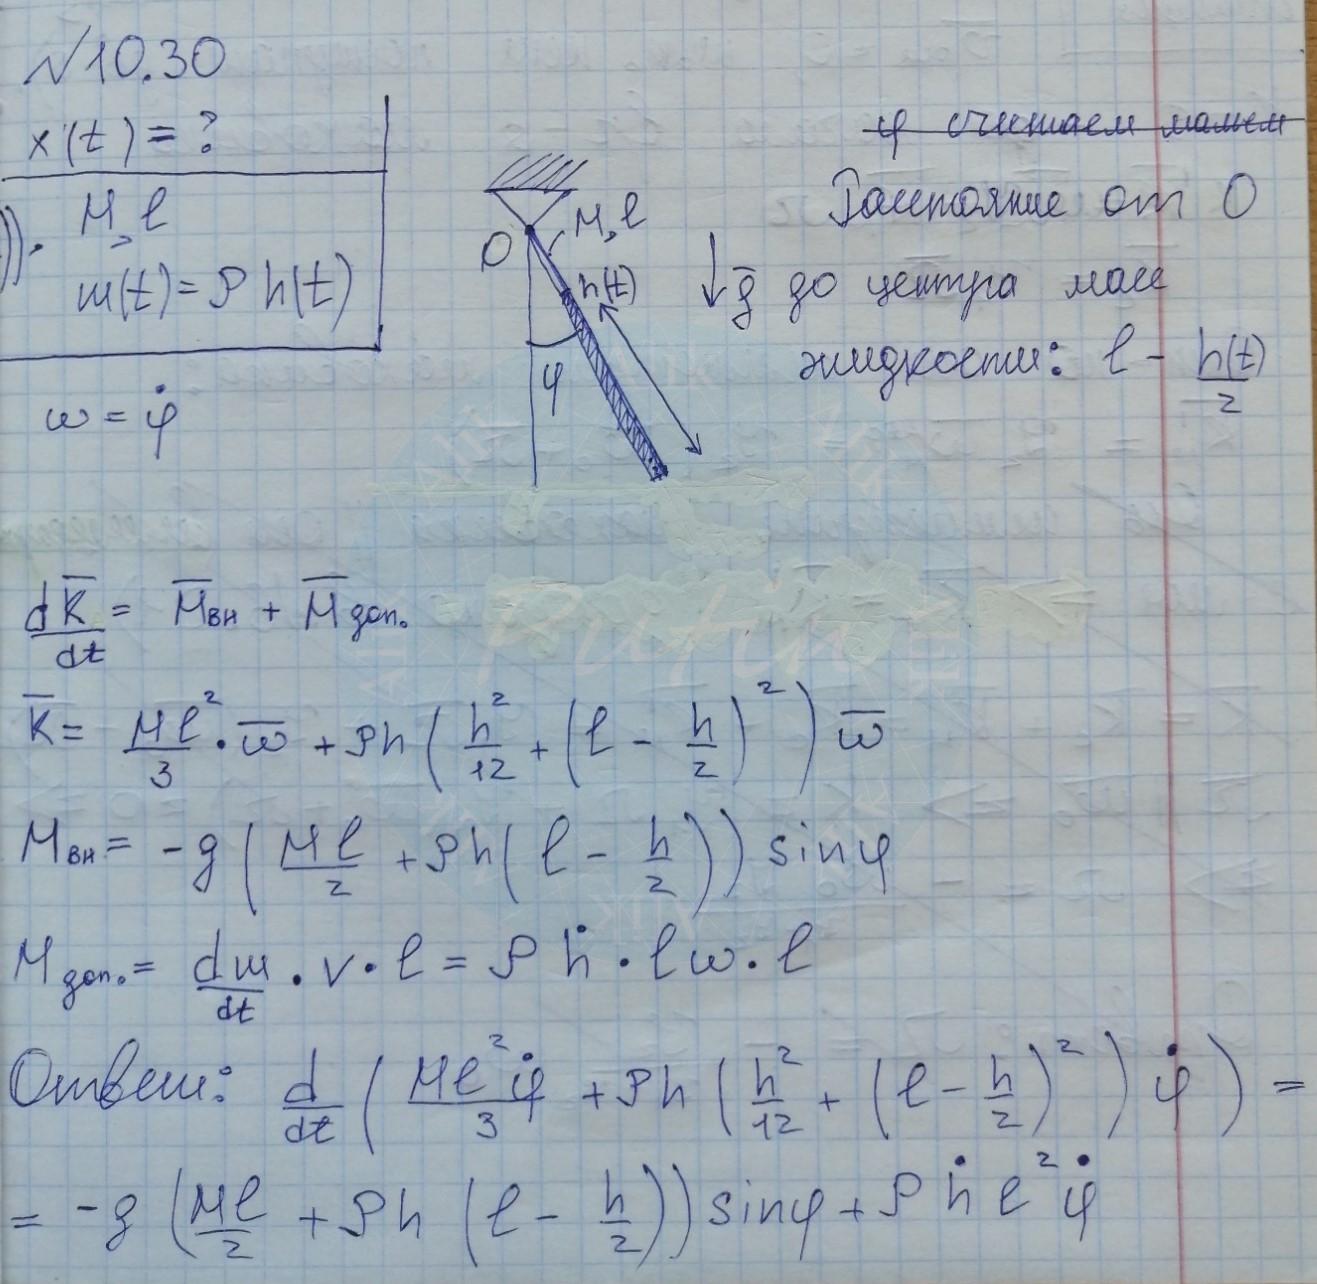 №10.30
x(t) = ?
M, l
m(t) = ρ h(t)
ω = φ̇
φ считаем малым
Расстояние от О
до центра масс
жидкости: l - h(t)/2
O
M, l
h(t)
φ
↓ g̅
dK̅/dt = M̅вн + M̅доп.
K̅ = Ml²/3 · ω̅ + ρh (h²/12 + (l - h/2)²) ω̅
Mвн = -g (Ml/2 + ρh (l - h/2)) sinφ
Mдоп. = dm/dt · v · l = ρ ḣ · lω · l
Ответ: d/dt (Ml²φ̇/3 + ρh (h²/12 + (l - h/2)²) φ̇) =
= -g (Ml/2 + ρh (l - h/2)) sinφ + ρ ḣ l² φ̇